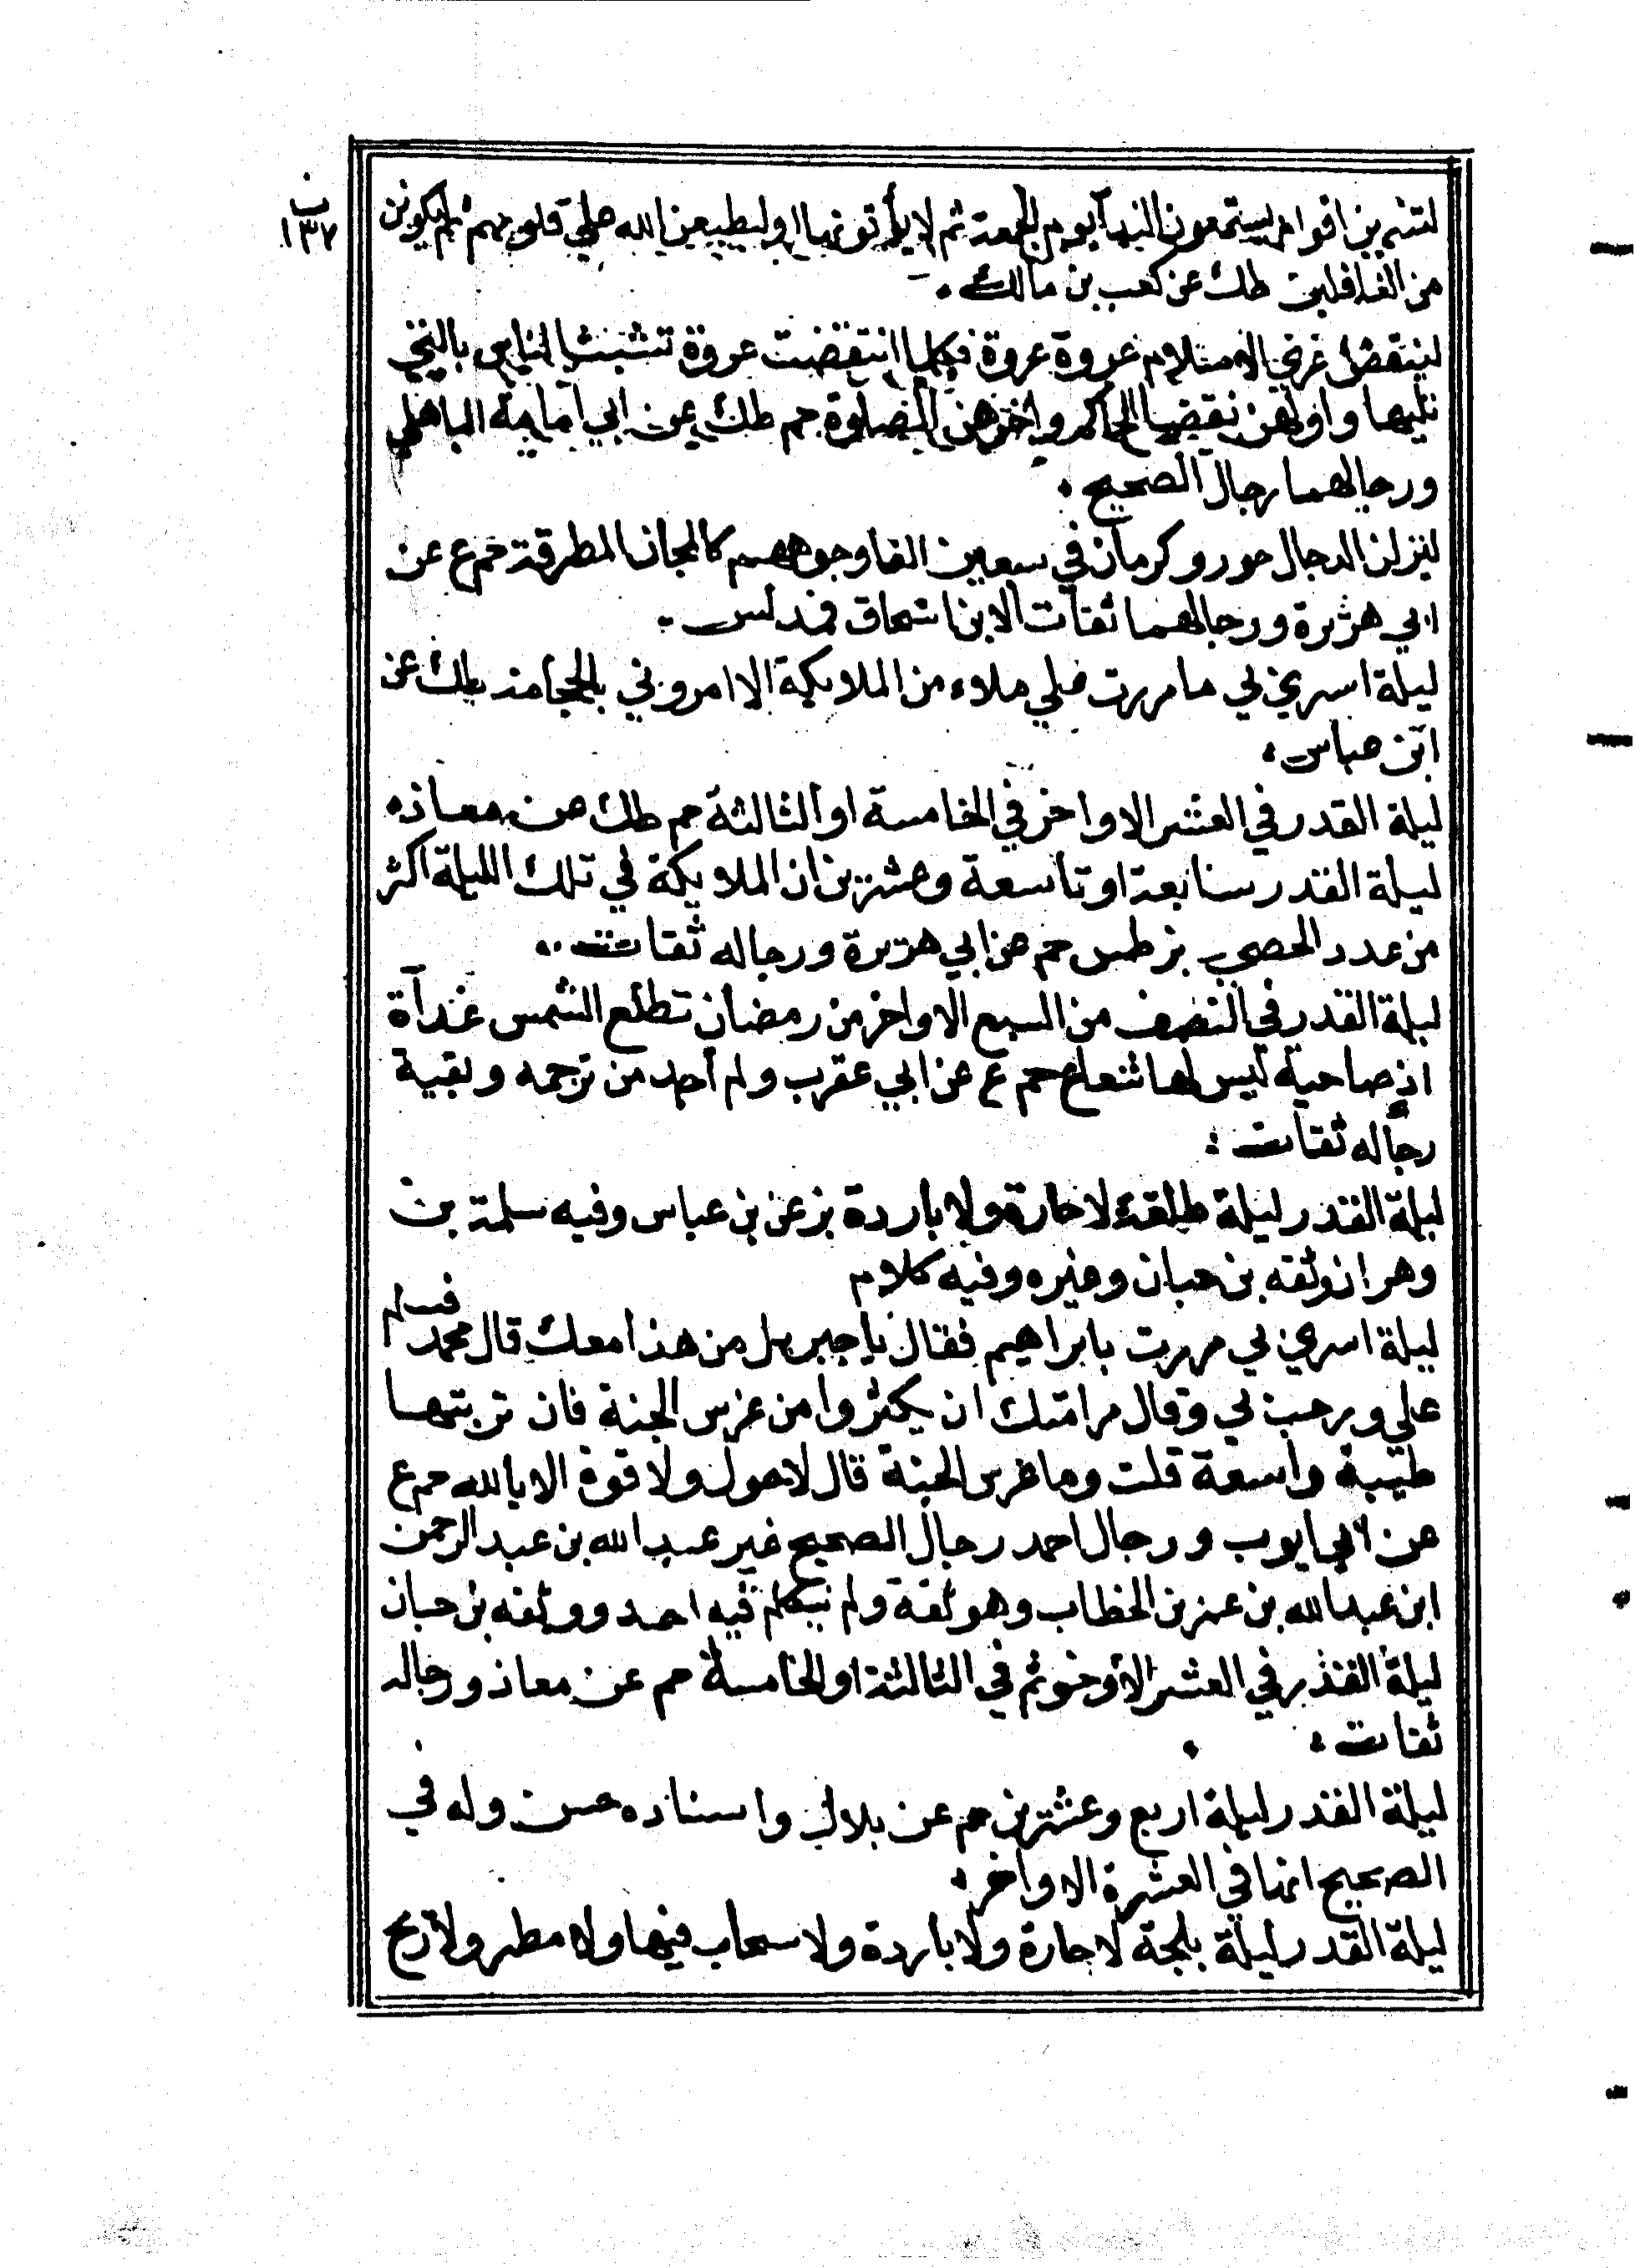 ب
١٣٧
لينتهين اقوام يستمعون الندآ يوم الجمعة ثم لا يأتونها او ليطبعن الله على قلوبهم ثم ليكونن
من الغافلين طك عن كعب بن مالك
لينتقض عرى الاسلام عروة عروة فكلما انتقضت عروة تشبث الناس بالتي
تليها واولهن نقضا الحكم واخرهن الصلوة حم طك عن ابي امامة الباهلي
ورجالهما رجال الصحيح
لينزلن الدجال حوز وكرمان في سبعين الفا وجوههم كالمجان المطرقة حم ع عن
ابي هريرة ورجالهما ثقات الا بن اسحاق مدلس
ليلة اسري بي ما مررت على ملاء من الملايكة الا امروني بالحجامة طك عن
ابن عباس
ليلة القدر في العشر الاواخر في الخامسة او الثالثة حم طك عن معاذ
ليلة القدر سابعة او تاسعة وعشرين ان الملايكة في تلك الليلة اكثر
من عدد الحصى بز طس حم عن ابي هريرة ورجاله ثقات
ليلة القدر في النصف من السبع الاواخر من رمضان تطلع الشمس غداة
اذ صاحية ليس لها شعاع حم ع عن ابي عقرب ولم أجد من ترجمه وبقية
رجاله ثقات
ليلة القدر ليلة طلقة لا حارة ولا باردة بز عن بن عباس وفيه سلمة بن
وهران وثقه بن حبان وغيره وفيه كلام
ليلة اسري بي مررت بابراهيم فقال يا جبريل من هذا معك قال محمد فسلم
علي ورحب بي وقال مر امتك ان يكثروا من غرس الجنة فان تربتها
طيبة واسعة قلت وما غرس الجنة قال لا حول ولا قوة الا بالله حم ع
عن ابي ايوب ورجال احمد رجال الصحيح غير عبد الله بن عبد الرحمن
ابن عبد الله بن عمر بن الخطاب وهو ثقة ولم يتكلم فيه احد ووثقه بن حبان
ليلة القدر في العشر الأوخر ثم في الثالثة او الخامسة حم عن معاذ ورجاله
ثقات
ليلة القدر ليلة اربع وعشرين حم عن بلال واسناده حسن وله في
الصحيح انها في العشرة الاواخر
ليلة القدر ليلة بلجة لا حارة ولا باردة ولا سحاب فيها ولا مطر ولا ريح